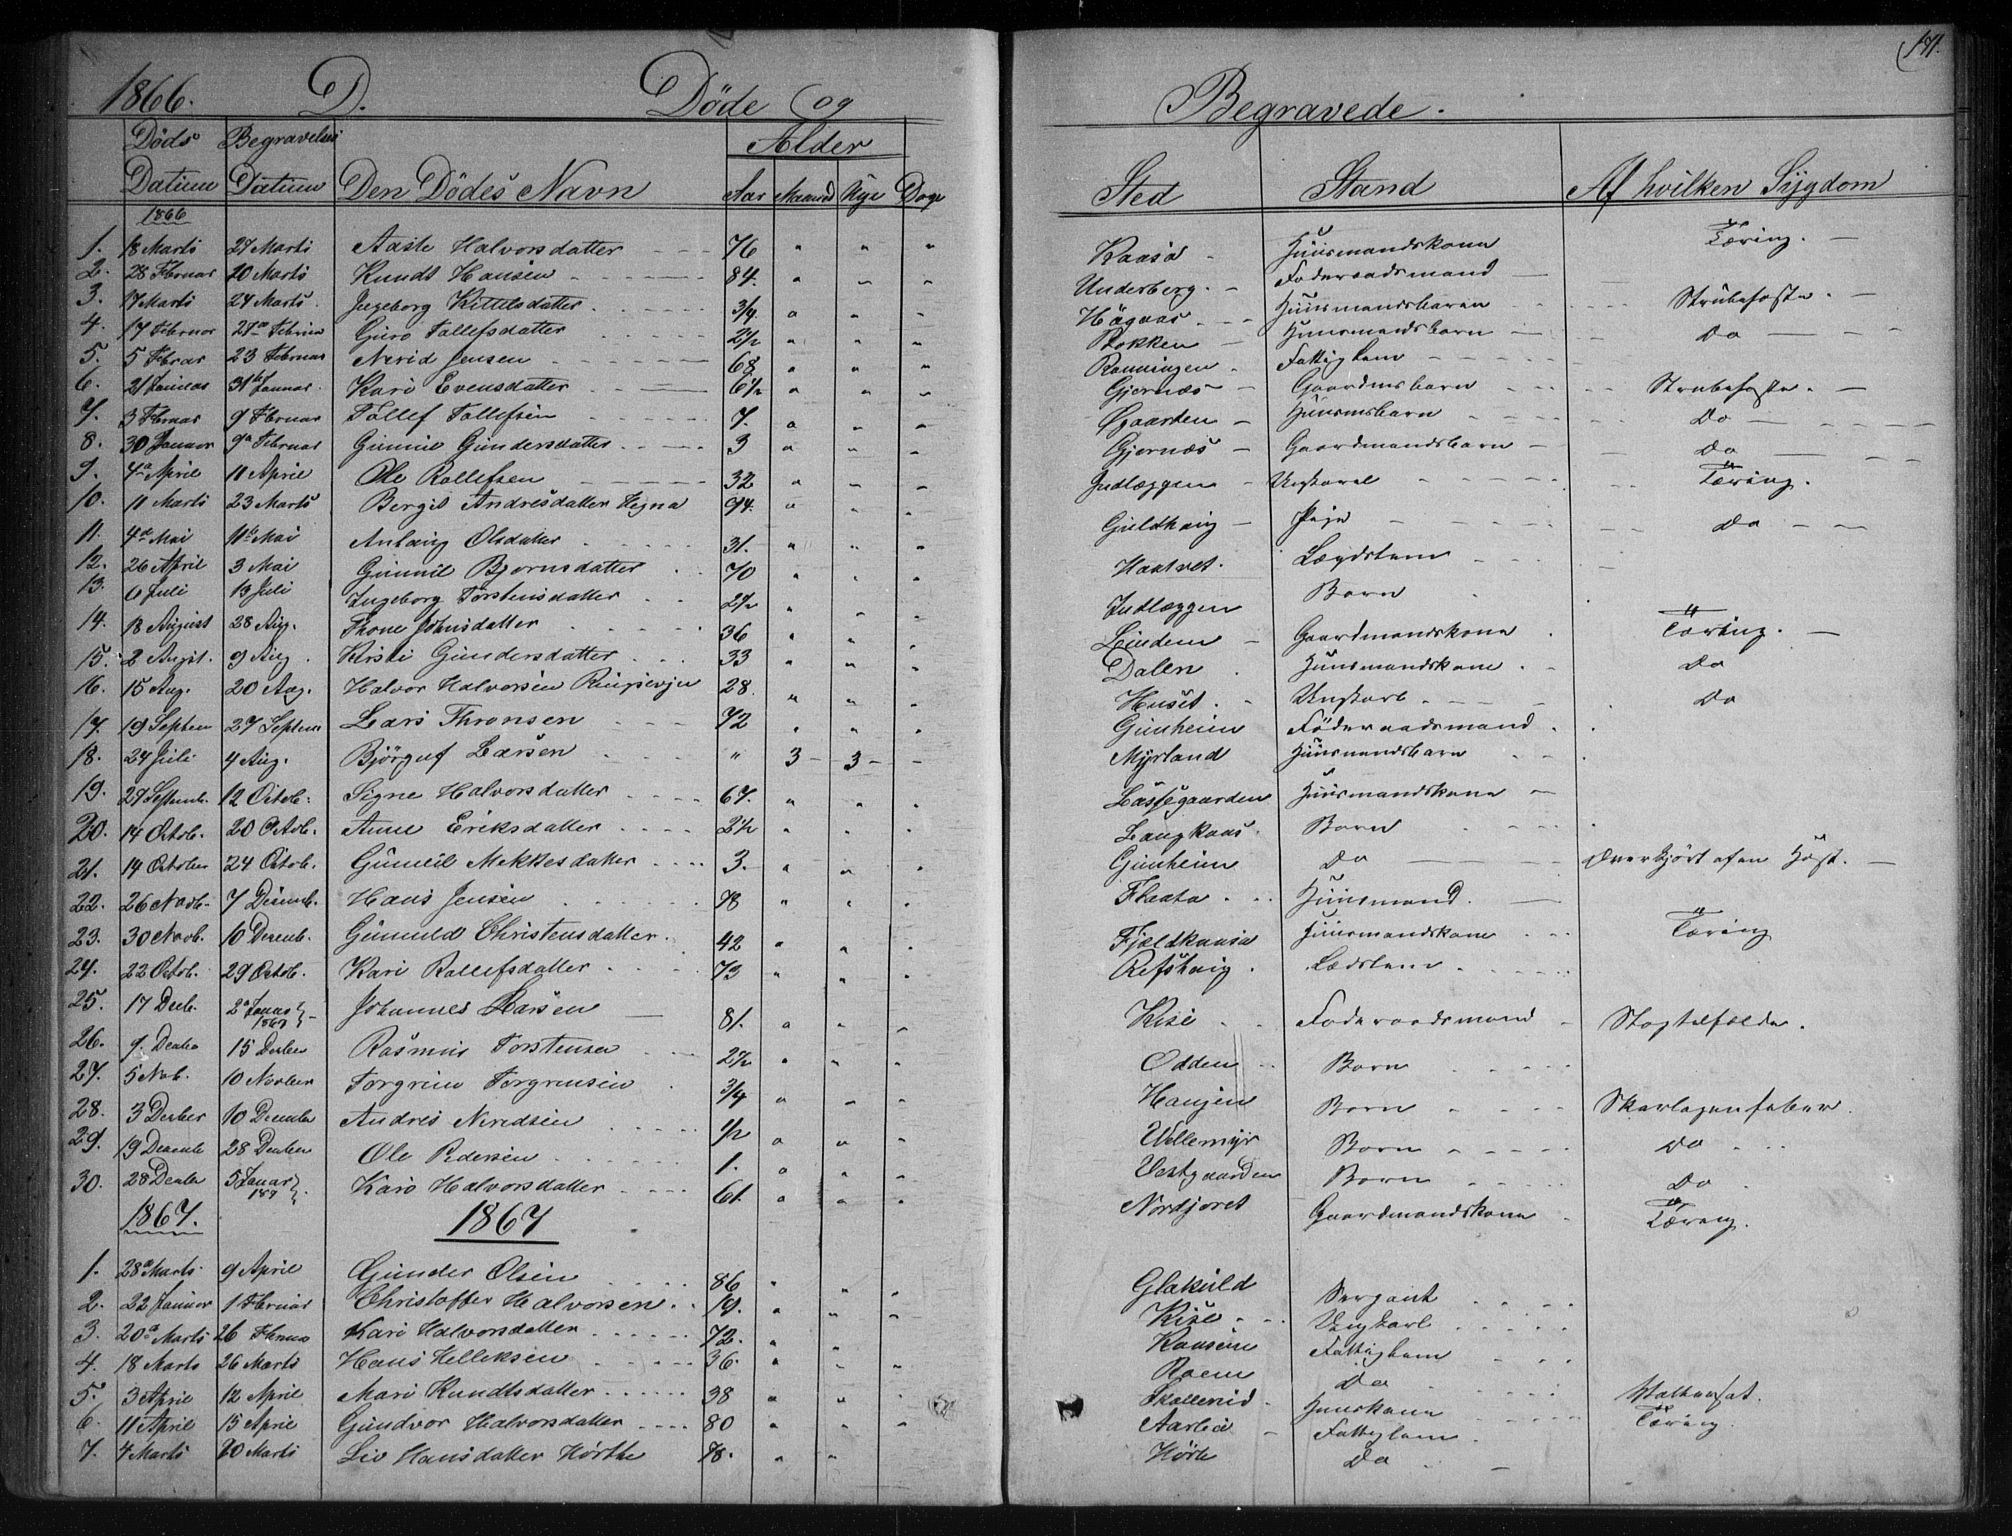 171.
1866. D. Döde og Begravede.
Döds Datum Begravelses Datum Den Dödes Navn Alder Aar Maaned Uge Dage Sted Stand Af hvilken Sygdom
1866
1. 18 Marts 27 Marts Aaste Halvorsdatter 76 " " " Kaasa Huusmandskone Tæring.
2. 28 Februar 20 Marts Knudt Hansen 84. " " " Underberg. Föderaadsmand
3. 17 Marts 24 Marts. Ingeborg Kittilsdatter 3/4 " " " Huusmandsbarn Strubehoste.
4. 17 Februar Guro Tollefsdatter 2 1/2 " " " Bokken Huusmandsbarn Do
5. 5 Febrar 23 Februar Nerid Jensen 68 " " " Rønningen Fattiglem
6. 21 Januar 31te Januar. Kari Evensdatter 6 1/2 " " " Gjernæs Gaardmsbarn Strubehoste.
7. 3 Februar 9 Februar Tollef Tollefsen 7. " " " Øgaarden Huusmsbarn Do
8. 30 Januar 9de Februar Gunnil Gundersdatter 3 " " " Gjernæs Gaardmandsbarn Do
9. 4de April 11 April Ole Rollefsen 32 " " " Indlæggen Ungkarl Tæring.
10. 11 Marts 23 Marts Bergit Andresdatter Hegna 94. " " " Guldhaug Pige Do
11. 4de Mai 11te Mai Anlaug Olsdatter 31. " " "
12. 26 April 3 Mai Gunnil Bjørnsdatter 70 " " " Haatvet. Lægdslem
13. 6 Juli 13 Juli Ingeborg Torstensdatter 2 1/2 " " " Indlæggen Barn
14. 18 August 28 Aug. Thone Johnsdatter 36 " " " Lindem Gaardmandskone Tæring.
15. 2 Augst. 9 Aug. Kirsti Gundersdatter 33 " " " Dalen Huusmandskone Do
16. 15 Aug. 20 Aug. Halvor Halvorsen 28. " " " Huset. Ungkarl Do
17. 19 Septem 27 Septem Lars Thronsen 72 " " " Gunheim Föderaadsmand
18. 24 Juli 4 Aug. Bjørguf Larsen " 3 3 Myrland Huusmandsbarn
19. 27 Septemb. 12 Octob. Signe Halvorsdatter 67. " " " Lassegaarden Huusmandskone
20. 14 Octob. 20 Octob. Anne Eriksdatter 2 1/2 " " " Langkaas. Barn
21. 14 October 24 Octob. Gunnil Mekkesdatter 3. " " " Gunheim Do Overkjört af en Hest.
22. 26 Novb. 7 Decemb. Hans Jensen 78 " " " Flaata Huusmand.
23. 30 Novb. 10 Decemb. Gunnild Christensdatter. 42 " " " Fjeldkaasa Huusmandskone Tæring
24. 22 Octob. 29 Octob. Kari Rollefsdatter 73 " " " Refshaug. Lædslem
25. 17 Decb. 2de Januar 1867 Johannes Larsen 81. " " " Kise Foderaadsmand
26. 9. Decbr 15 Decber Rasmus Torstensen 2 1/2 " " " Odden Barn
27. 5 Nob. 10 Novber Torgrim Torgrimsen 3/4 " " " Haugen Barn Skarlagensfeber.
28. 3 Decber 10 Decmber Andres Neridsen 1/2 " " " Vellemyr Barn Do
29. 19 Decemb 28 Decber Ole Pedersen 1. " " " Vestgaarden Barn Do
30. 28 Decber 5 Januar 187 Kari Halvorsdatter 61. " " " Nordjoret Gaardmandskone Tæring.
1867. 1867
1. 28de Marts 9 April Gunder Olsen 86 " " " Glakuld Sergant
2. 22 Januar 1 Februar Christoffer Halvorsen. 19. " " " Kise Ungkarl
3. 20de Marts 26 Februar Kari Halvorsdatter 72. " Kaasene Fattiglem
4. 18 Marts 26 Marts Hans Kelleksen 36. " " " Roem Do
5. 3 April 12 April Mari Knudtsdatter 38 " " Skollerud Huuskone
6. 11 April 15 April Gundvor Halvorsdatter 80 " " " Aarlia Fattiglem Tæring.
7. 4 Marts 20 Marts Liv Hansdatter Hörthe 78. " " Hörte Do